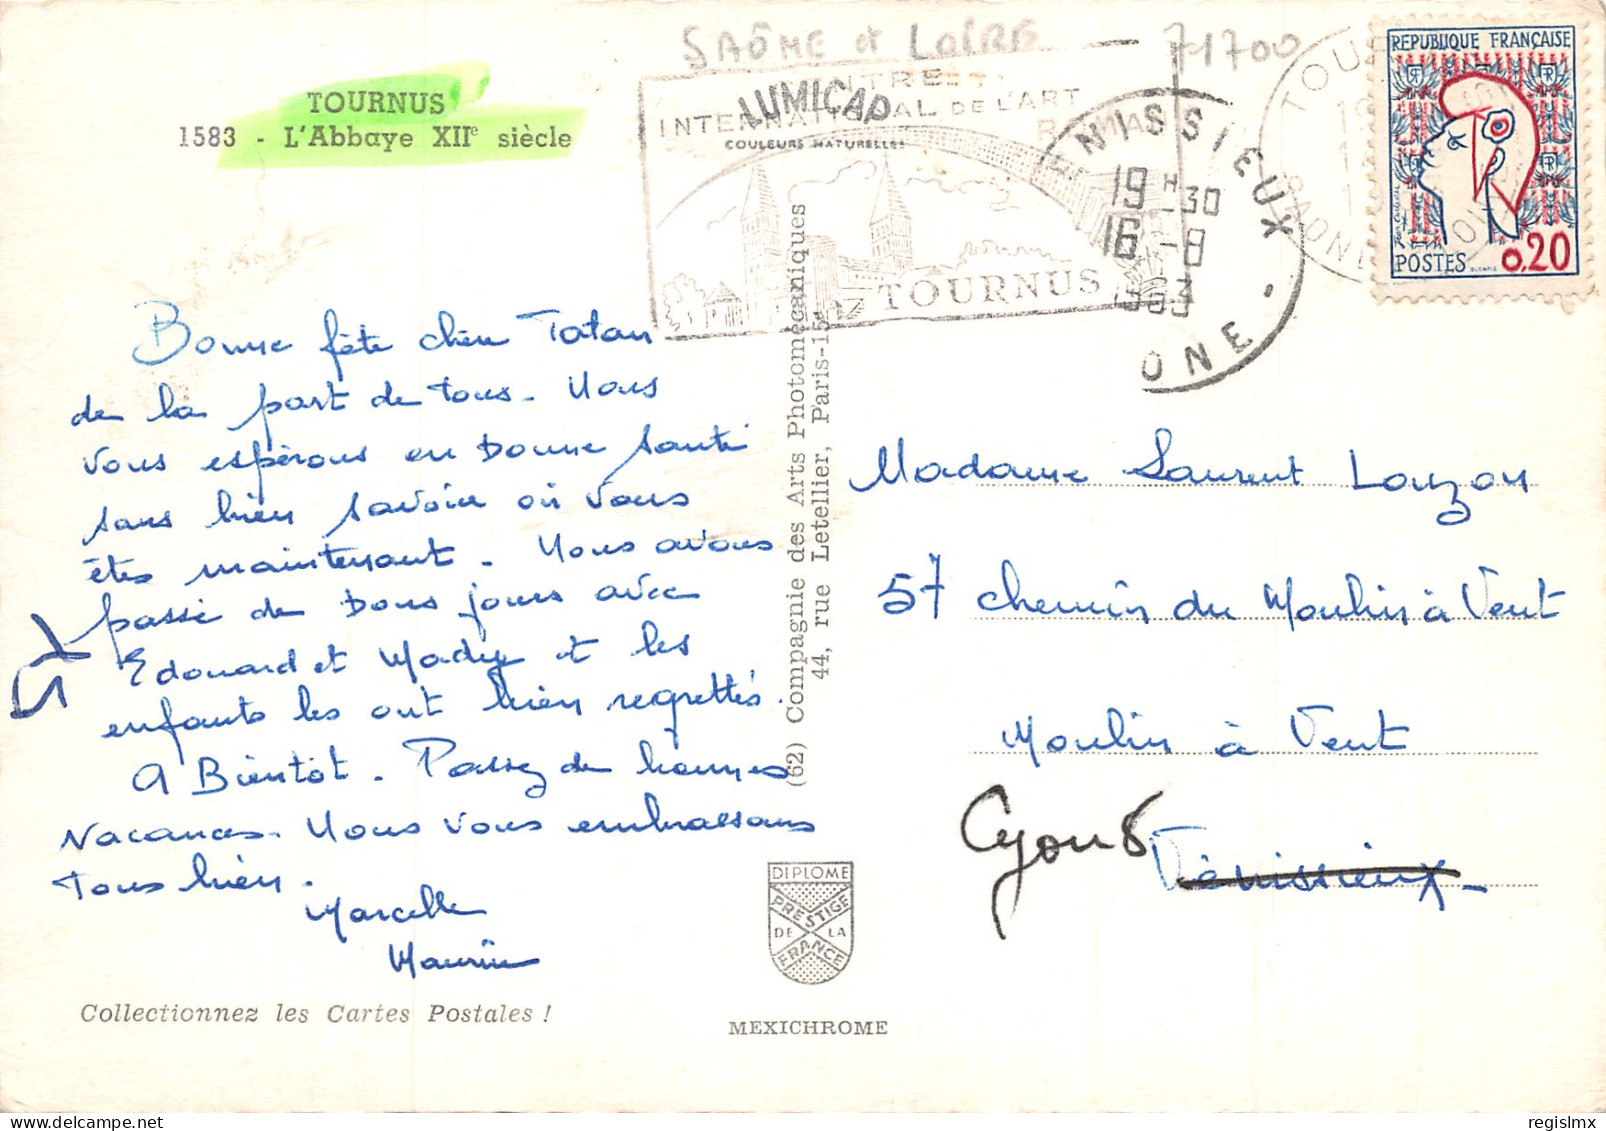 SAÔNE et LOIRE 71700
TOURNUS
1583 - L'Abbaye XIIe siècle
LUMICAP
COULEURS NATURELLES
INTERNATIONAL DE L'ART
TOURNUS
VENISSIEUX
19H30
16-8
1963
RHONE
REPUBLIQUE FRANÇAISE
POSTES 0,20
Bonne fête chère Tatan
de la part de tous. Nous
vous espérons en bonne santé
sans bien savoir où vous
êtes maintenant. Nous avons
passé de bons jours avec
Edouard et Mady et les
enfants les ont bien regrettés.
A Bientôt. Passez de bonnes
vacances. Nous vous embrassons
tous bien.
Marcelle
Maurice
57
(62) Compagnie des Arts Photomécaniques
44, rue Letellier, Paris-15e
Madame Laurent Louzon
57 chemin du Moulin à Vent
Moulin à Vent
Lyon 8 Vénissieux
DIPLOME
PRESTIGE
DE LA
FRANCE
Collectionnez les Cartes Postales !
MEXICHROME
regislmx